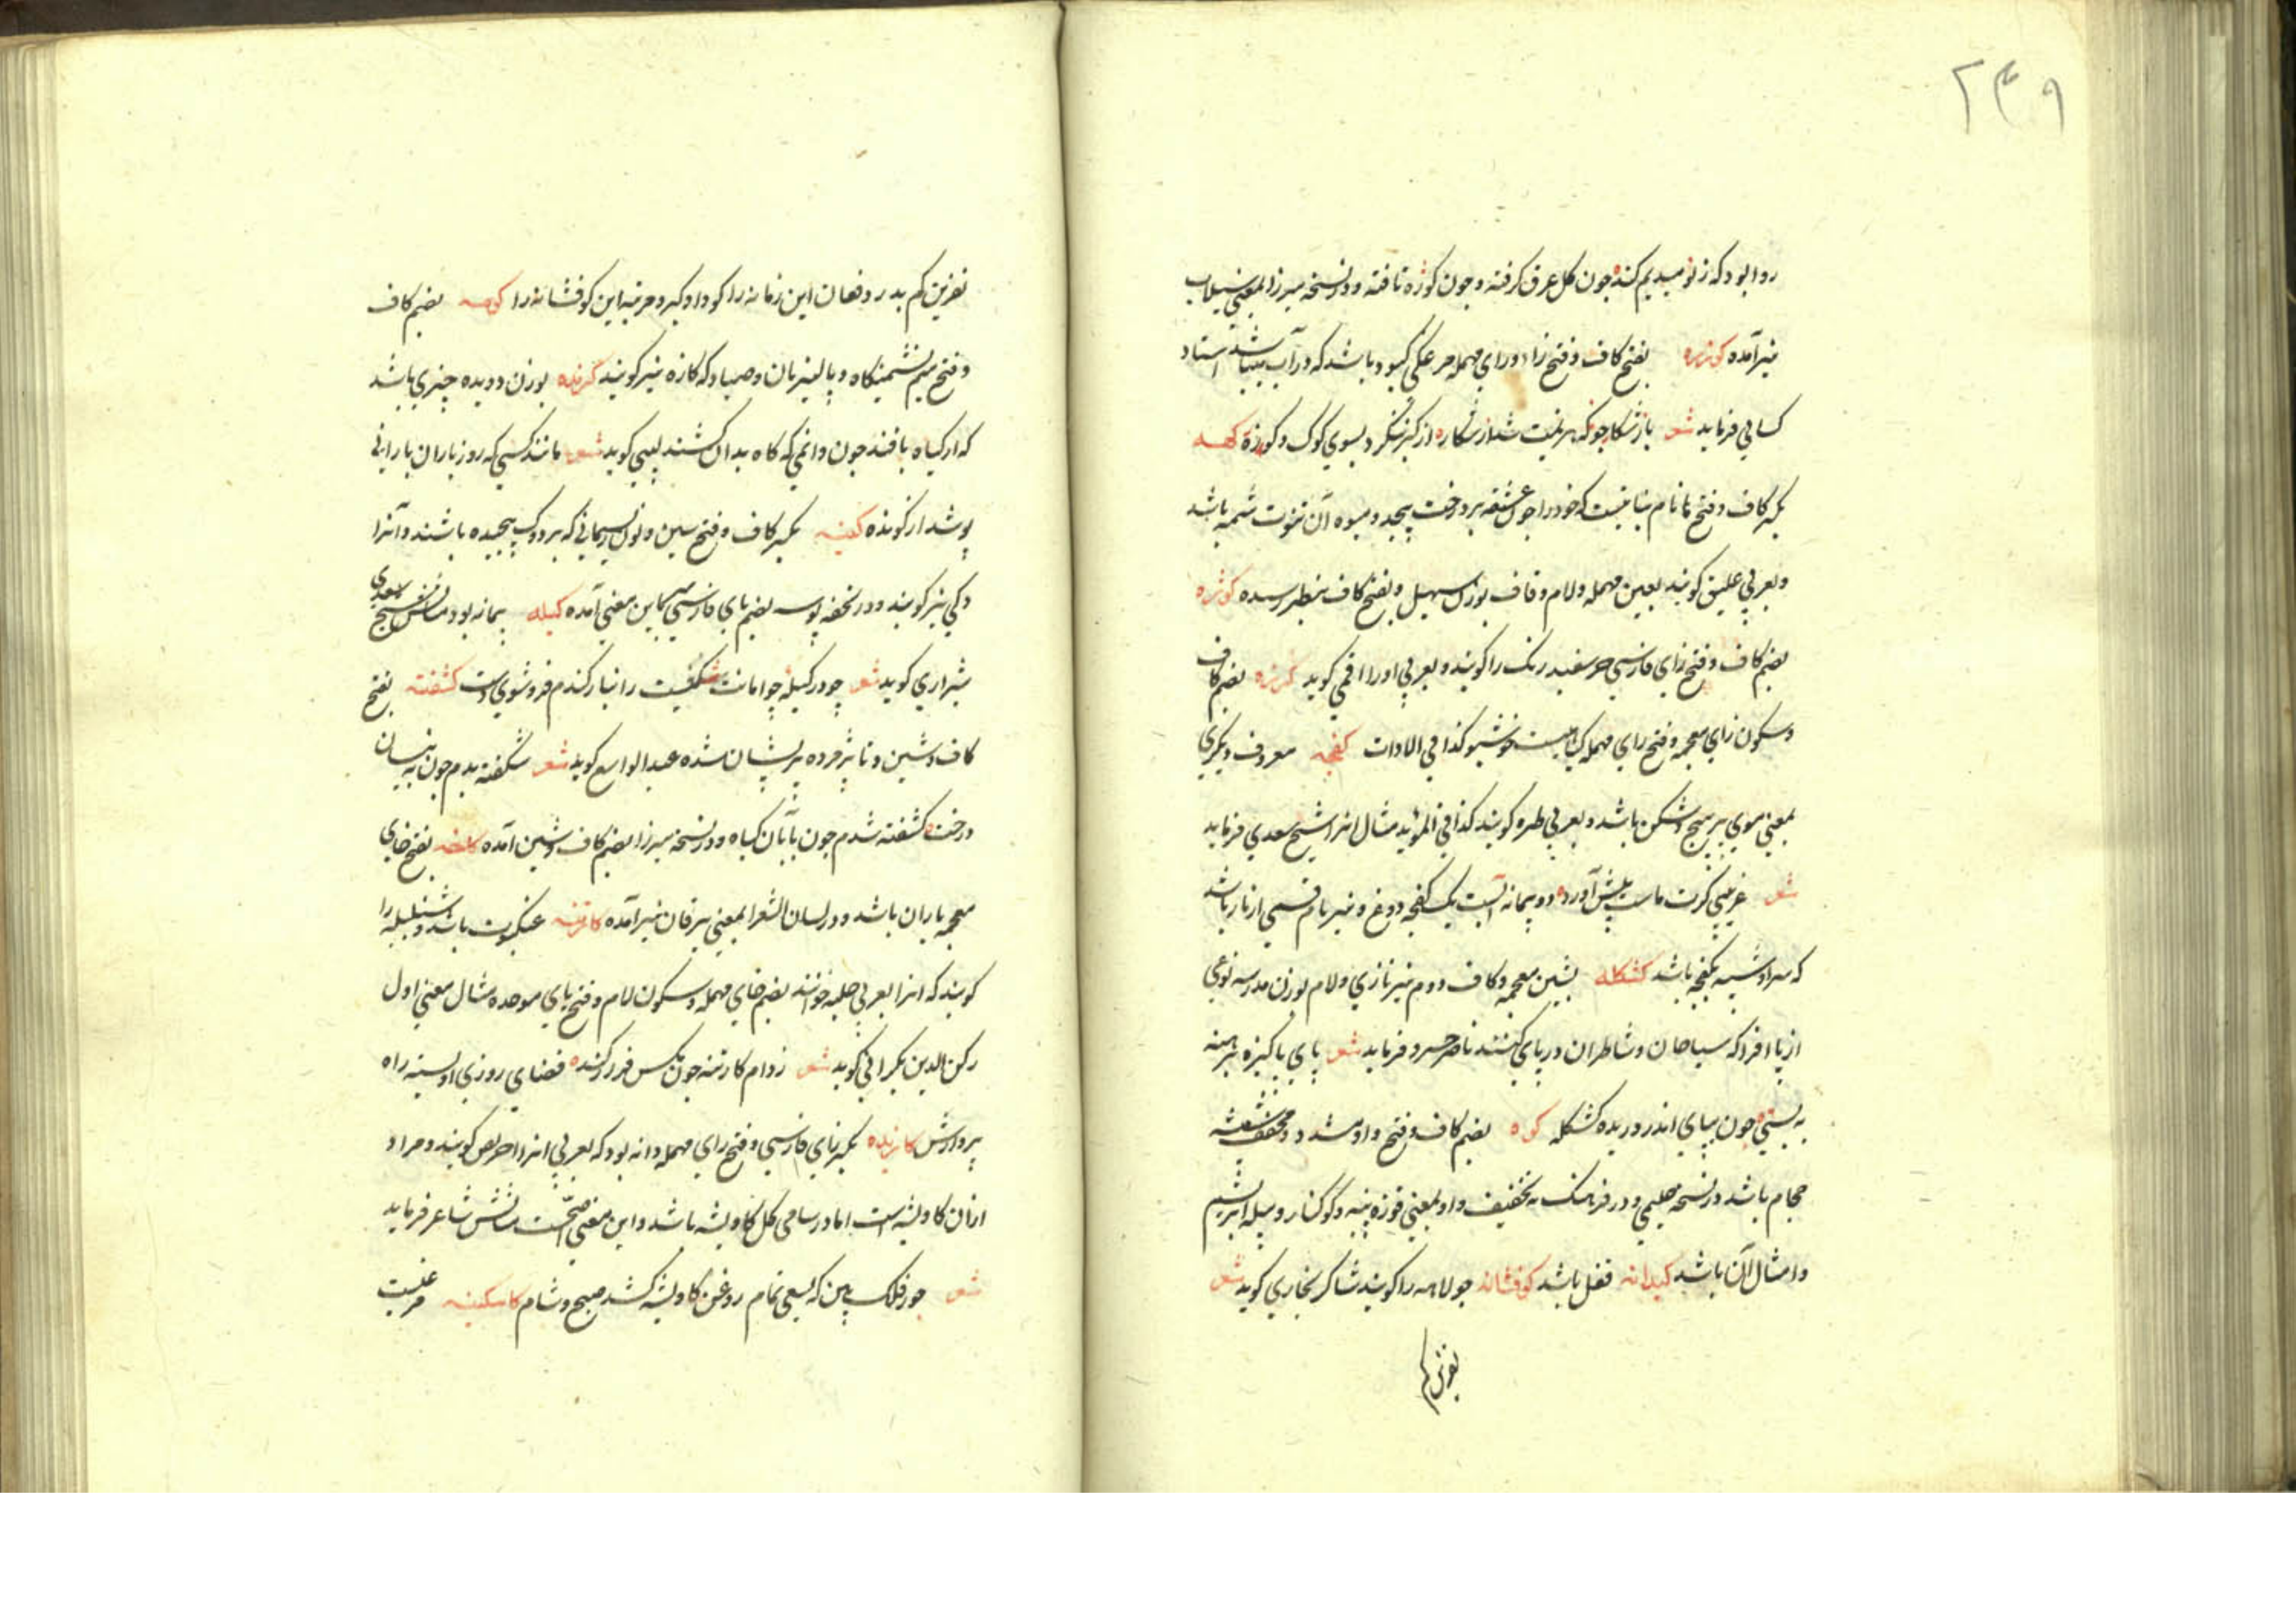 ۲۴۹
روا بود که ز نومیدیم کند چون گل عرق گرفته و چون کوزه تافته و در نسخه میرزا بمعنی سیلاب
نیز آمده کوزره بفتح کاف و فتح زا و رای مهمله مرغکی کبود باشد که در آب باشد استاد
کسائی فرماید شعر باز شکارجو که هزیمت شد از شکاره از کبر ننگرد بسوی کوک و کوزه کهسه
بکسر کاف و فتح نام نباتیست که خود را چون عشقه بر درخت پیچد و میوه آن توت شمه باشد
و بعربی علیق کویند بعین مهمله و لام و قاف بوزن سهیل و بفتح کاف بنظر رسیده کوژه
بضم کاف و فتح زای فارسی خر سفید رنک را کویند و بعربی او را اقمر کوید کزره بضم کاف
و سکون زای معجمه و فتح رای مهمله کیاهیست خوشبو کذا فی الادات کفچه معروف و دیکری
بمعنی موی پر پیچ و شکن باشد و بعربی طره کویند کذا فی المؤید مثال انرا شیخ سعدی فرماید
شعر غریبی کرت ماست پیش آورد دو پیمانه آبست یک کفچه دوغ و نیز نام قسمی از مار باشد
که سر او شبیه بکفچه باشد کشکله بشین معجمه و کاف دوم نیز تازی و لام بوزن مدرسه نوعی
از پا افزار که سیاحان و شاطران در پای کنند ناصر خسرو فرماید شعر پای پاکیزه برهنه
به بسی چون بپای اندر دریده کشکله کوه بضم کاف و فتح واو مشدد و مخفف شیشه
حجام باشد در نسخه حلیمی و در فرهنک به تخفیف واو بمعنی غوزه پنبه و کوکنار و پیله ابریشم
و امثال آن باشد کیدانه قفل باشد کوفشانه جولاهه را کویند شاکر بخاری کوید شعر
نفرین کم
نفرین کم بدرد دهان این زمانه را کو داد کبر و مرتبه این کوفشانه را کومه بضم کاف
و فتح میم نشیمنکاه و پالیزبان و صیاد که کازه نیز کویند کرنده بوزن دویده چیزی باشد
که از کیاه بافند چون دامی که کاه بدان کشند لبیبی کوید شعر مانند کسی که روز باران بارانی
پوشد از کونده کسنه بکسر کاف و فتح سین و نون ریسمانی که بر دوک پیچیده باشند و آنرا
دکی نیز کویند و در تحفه پوسه بضم بای فارسی باین معنی آمده کیله پیمانه بود مثالش شیخ سعدی
شیرازی کوید شعر چو در کیله جو امانت شکست از انبار کندم فرو شوی دست کشفته بفتح
کاف و شین و تا پژمرده پریشان شده عبد الواسع کوید شعر شکفته بدم چون به نیسان
درخت کشفته شدم چون بآبان کیاه و در نسخه میرزا بضم کاف و شین آمده کاخه بفتح خای
معجمه باران باشد و در لسان الشعرا بمعنی یرقان نیز آمده کارتنه عنکبوت باشد و شنبلیله را
کویند که انرا بعربی حلبه خوانند بضم حای مهمله و سکون لام و فتح بای موحده مثال معنی اول
رکن الدین بکرانی کوید شعر ز دام کارتنه چون مکس فرو کنده فضای روزی او بسته راه
پروازش کازیره بکسر زای فارسی و فتح رای مهمله دانه بود که بعربی انرا احریض کویند و مراد
از آن کاویشه است اما در سامی کل کاویشه باشد و این معنی اصح است مثالش شاعر فرماید
شعر جور فلک بین که بسعی تمام روغن کاویشه کشد صبح و شام کاسکینه مرغیست